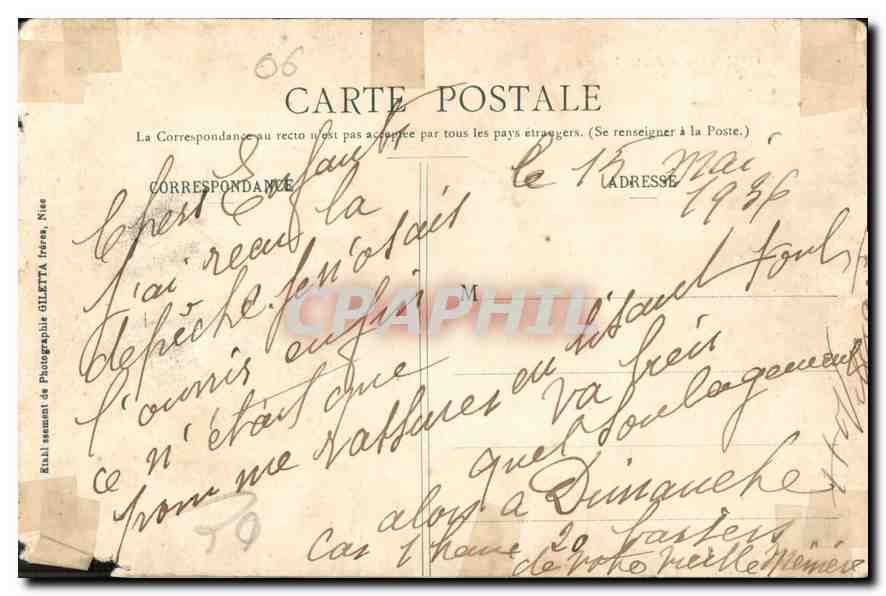 06
CARTE POSTALE
La Correspondance au recto n'est pas acceptée par tous les pays étrangers. (Se renseigner à la Poste.)
CORRESPONDANCE
ADRESSE
le 15 mai
1936
Chers Enfants
j'ai reçu la
depêche je n'osais
l'ouvrir enfin
ce n'était que
pour me rassurer en lisant tout
va bien
quel soulagement
alors a Dimanche
Car 1 heure 20
de votre vieille Mémère
M
CPAPHIL
Etabl ssement de Photographie GILETTA frères, Nice